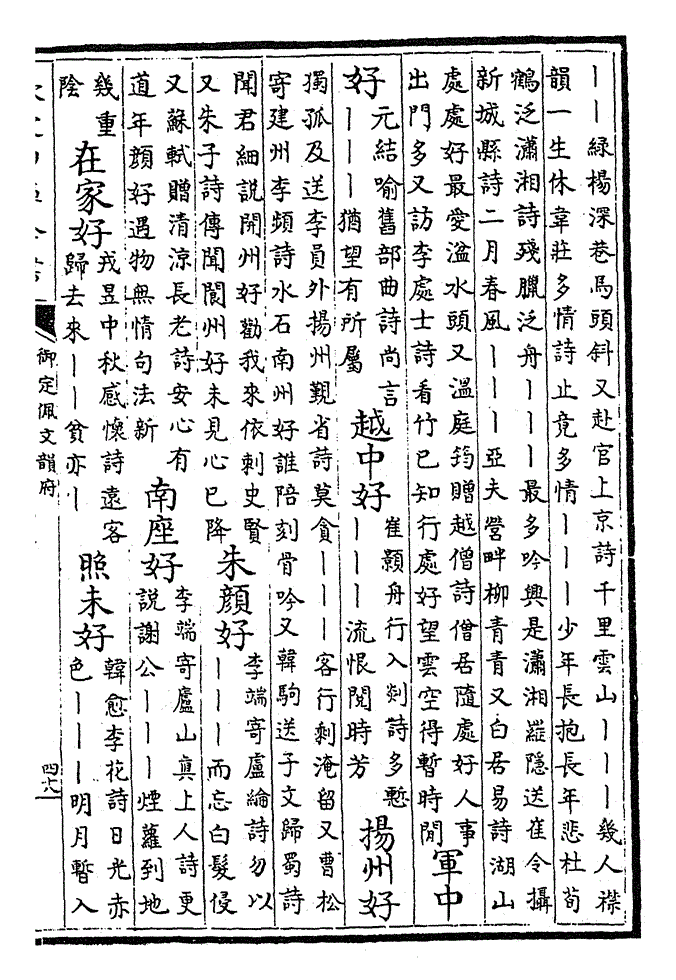 丨丨緑楊深巷馬頭斜又赴官上京詩千里雲山丨丨丨幾人襟
韻一生休韋莊多情詩止竟多情丨丨丨少年長抱長年悲杜荀
鶴泛瀟湘詩殘臘泛舟丨丨丨最多吟興是瀟湘羅隱送崔令攝
新城縣詩二月春風丨丨丨亞夫營畔柳青青又白居易詩湖山
處處好最愛湓水頭又溫庭筠贈越僧詩僧居隨處好人事
出門多又訪李處士詩看竹已知行處好望雲空得暫時閒
軍中
好
元結喻舊部曲詩尚言
丨丨丨猶望有所屬
越中好
崔顥舟行入剡詩多慙
丨丨丨流恨閱時芳
揚州好
獨孤及送李員外揚州覲省詩莫貪丨丨丨客行剩淹留又曹松
寄建州李頻詩水石南州好誰陪刻骨吟又韓駒送子文歸蜀詩
聞君細説開州好勸我來依刺史賢
又朱子詩傳聞閬州好未見心已降
朱顏好
李端寄盧綸詩勿以
丨丨丨而忘白髮侵
又蘇軾贈清涼長老詩安心有
道年顏好遇物無情句法新
南座好
李端寄廬山真上人詩更
説謝公丨丨丨煙蘿到地
幾重
陰
在家好
戎昱中秋感懷詩遠客
歸去來丨丨貧亦丨
照未好
韓愈李花詩日光赤
色丨丨丨明月暫入
御定佩文韻府